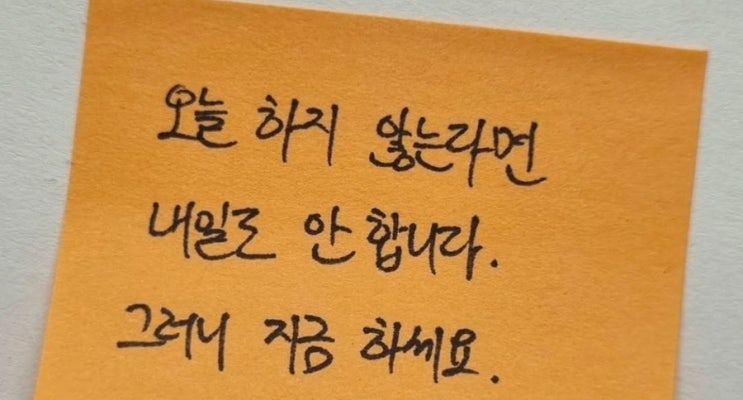 오늘 하지 않는라면
내일도 안 합니다.
그러니 지금 하세요.